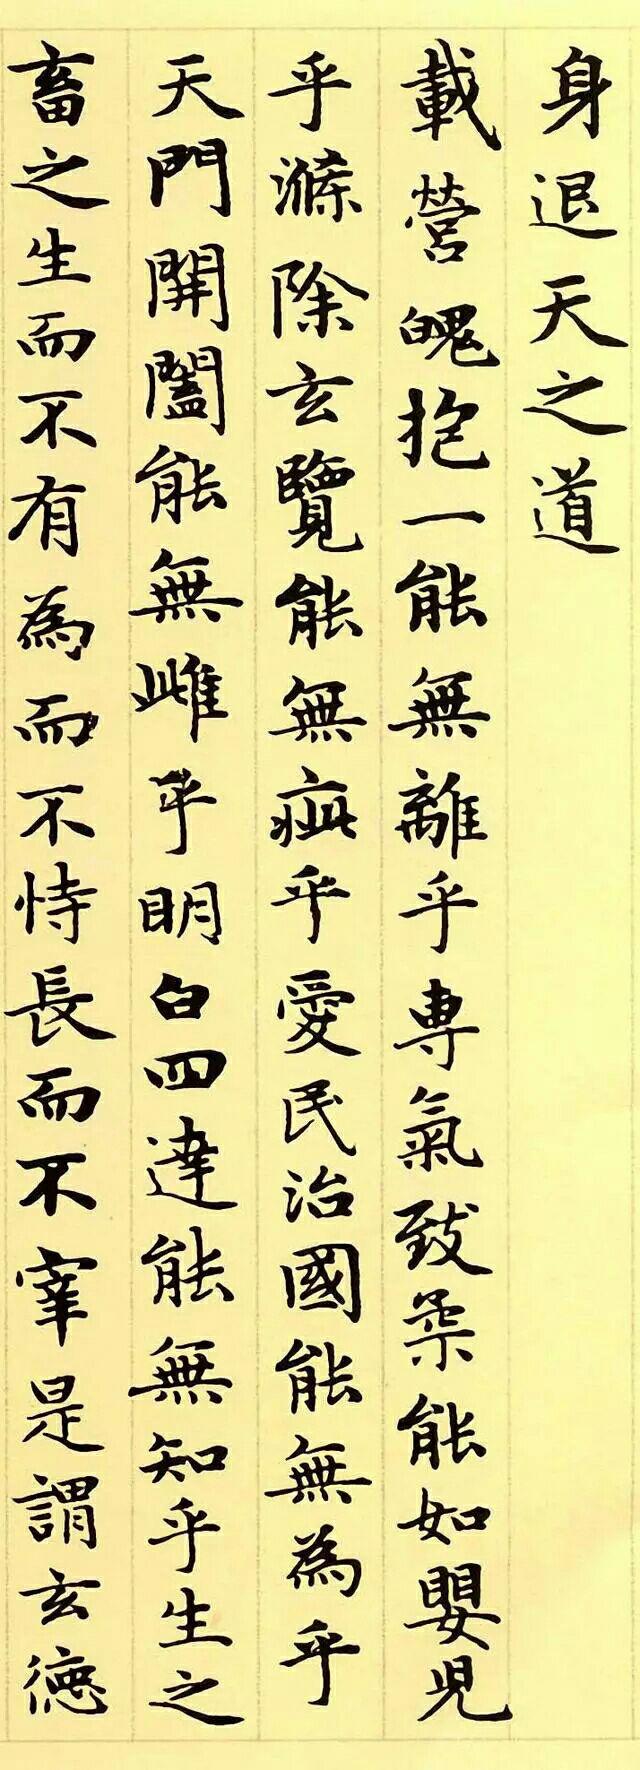 身退天之道
載營魄抱一能無離乎專氣致柔能如嬰兒
乎滌除玄覽能無疵乎愛民治國能無為乎
天門開闔能無雌乎明白四達能無知乎生之
畜之生而不有為而不恃長而不宰是謂玄德